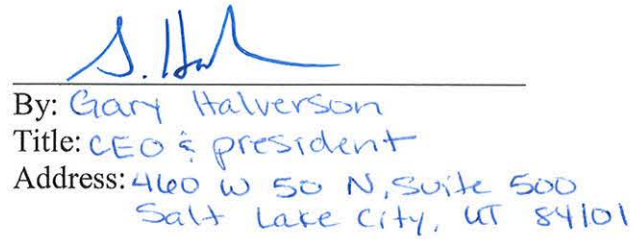 By: Gary Halverson
Title: CEO & president
Address: 460 W 50 N, Suite 500
Salt Lake City, UT 84101